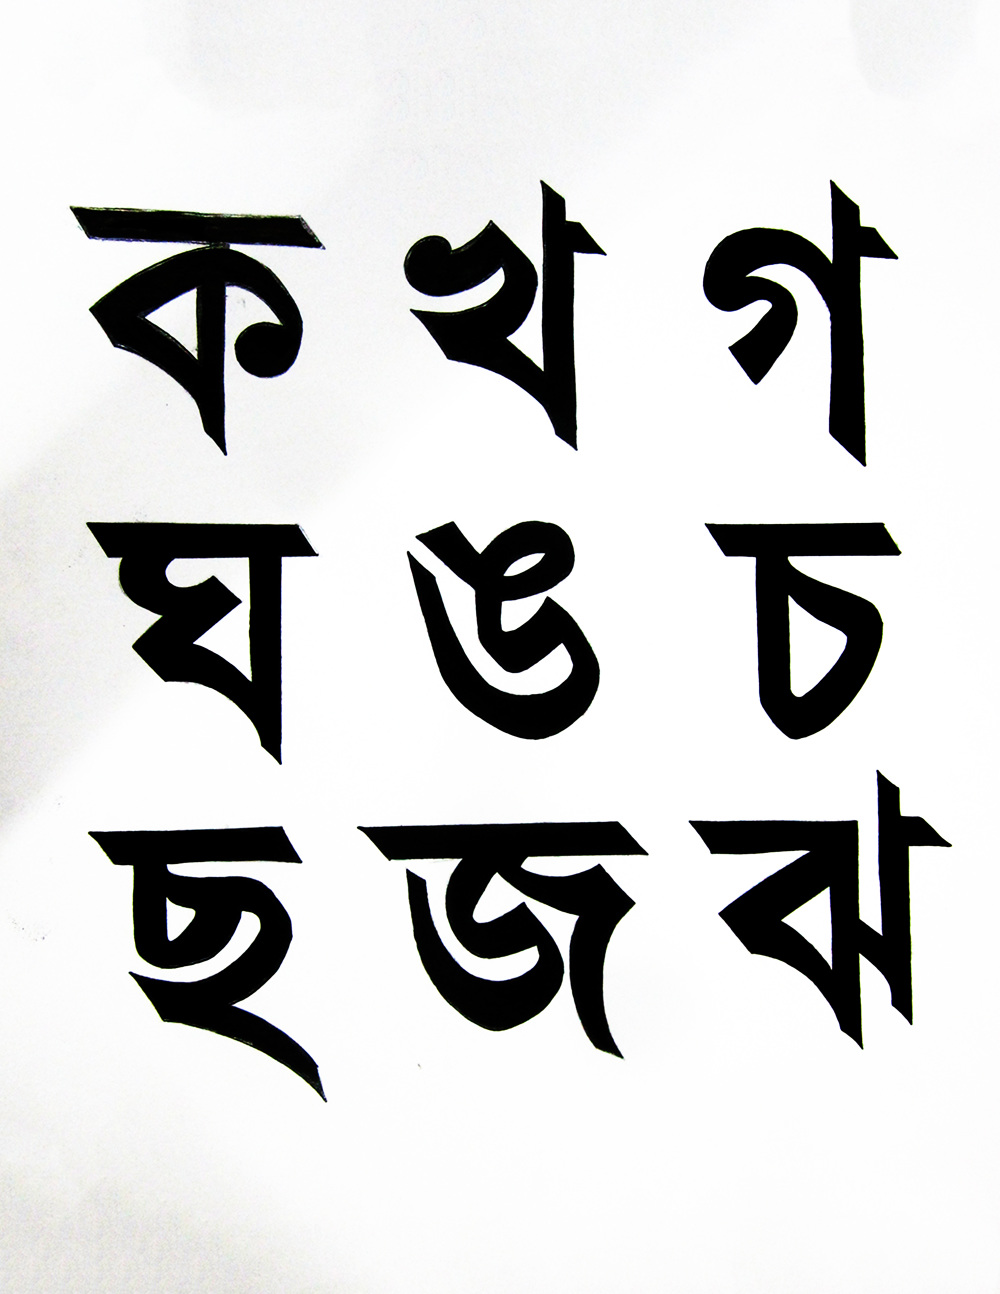 ক খ গ
ঘ ঙ চ
ছ জ ঝ